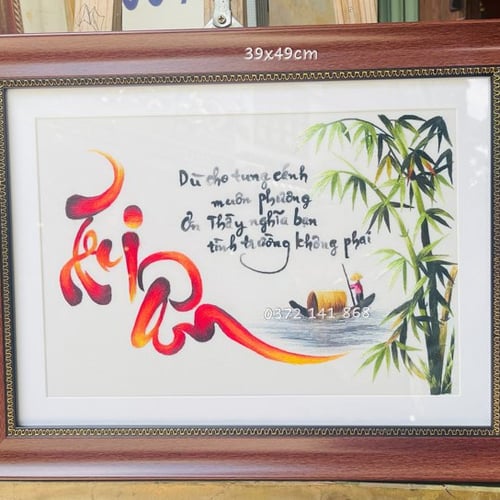 39x49cm
Tri Ân
Dù cho tung cánh
muôn phương
Ơn Thầy nghĩa bạn
tình trường không phai
0372 141 868